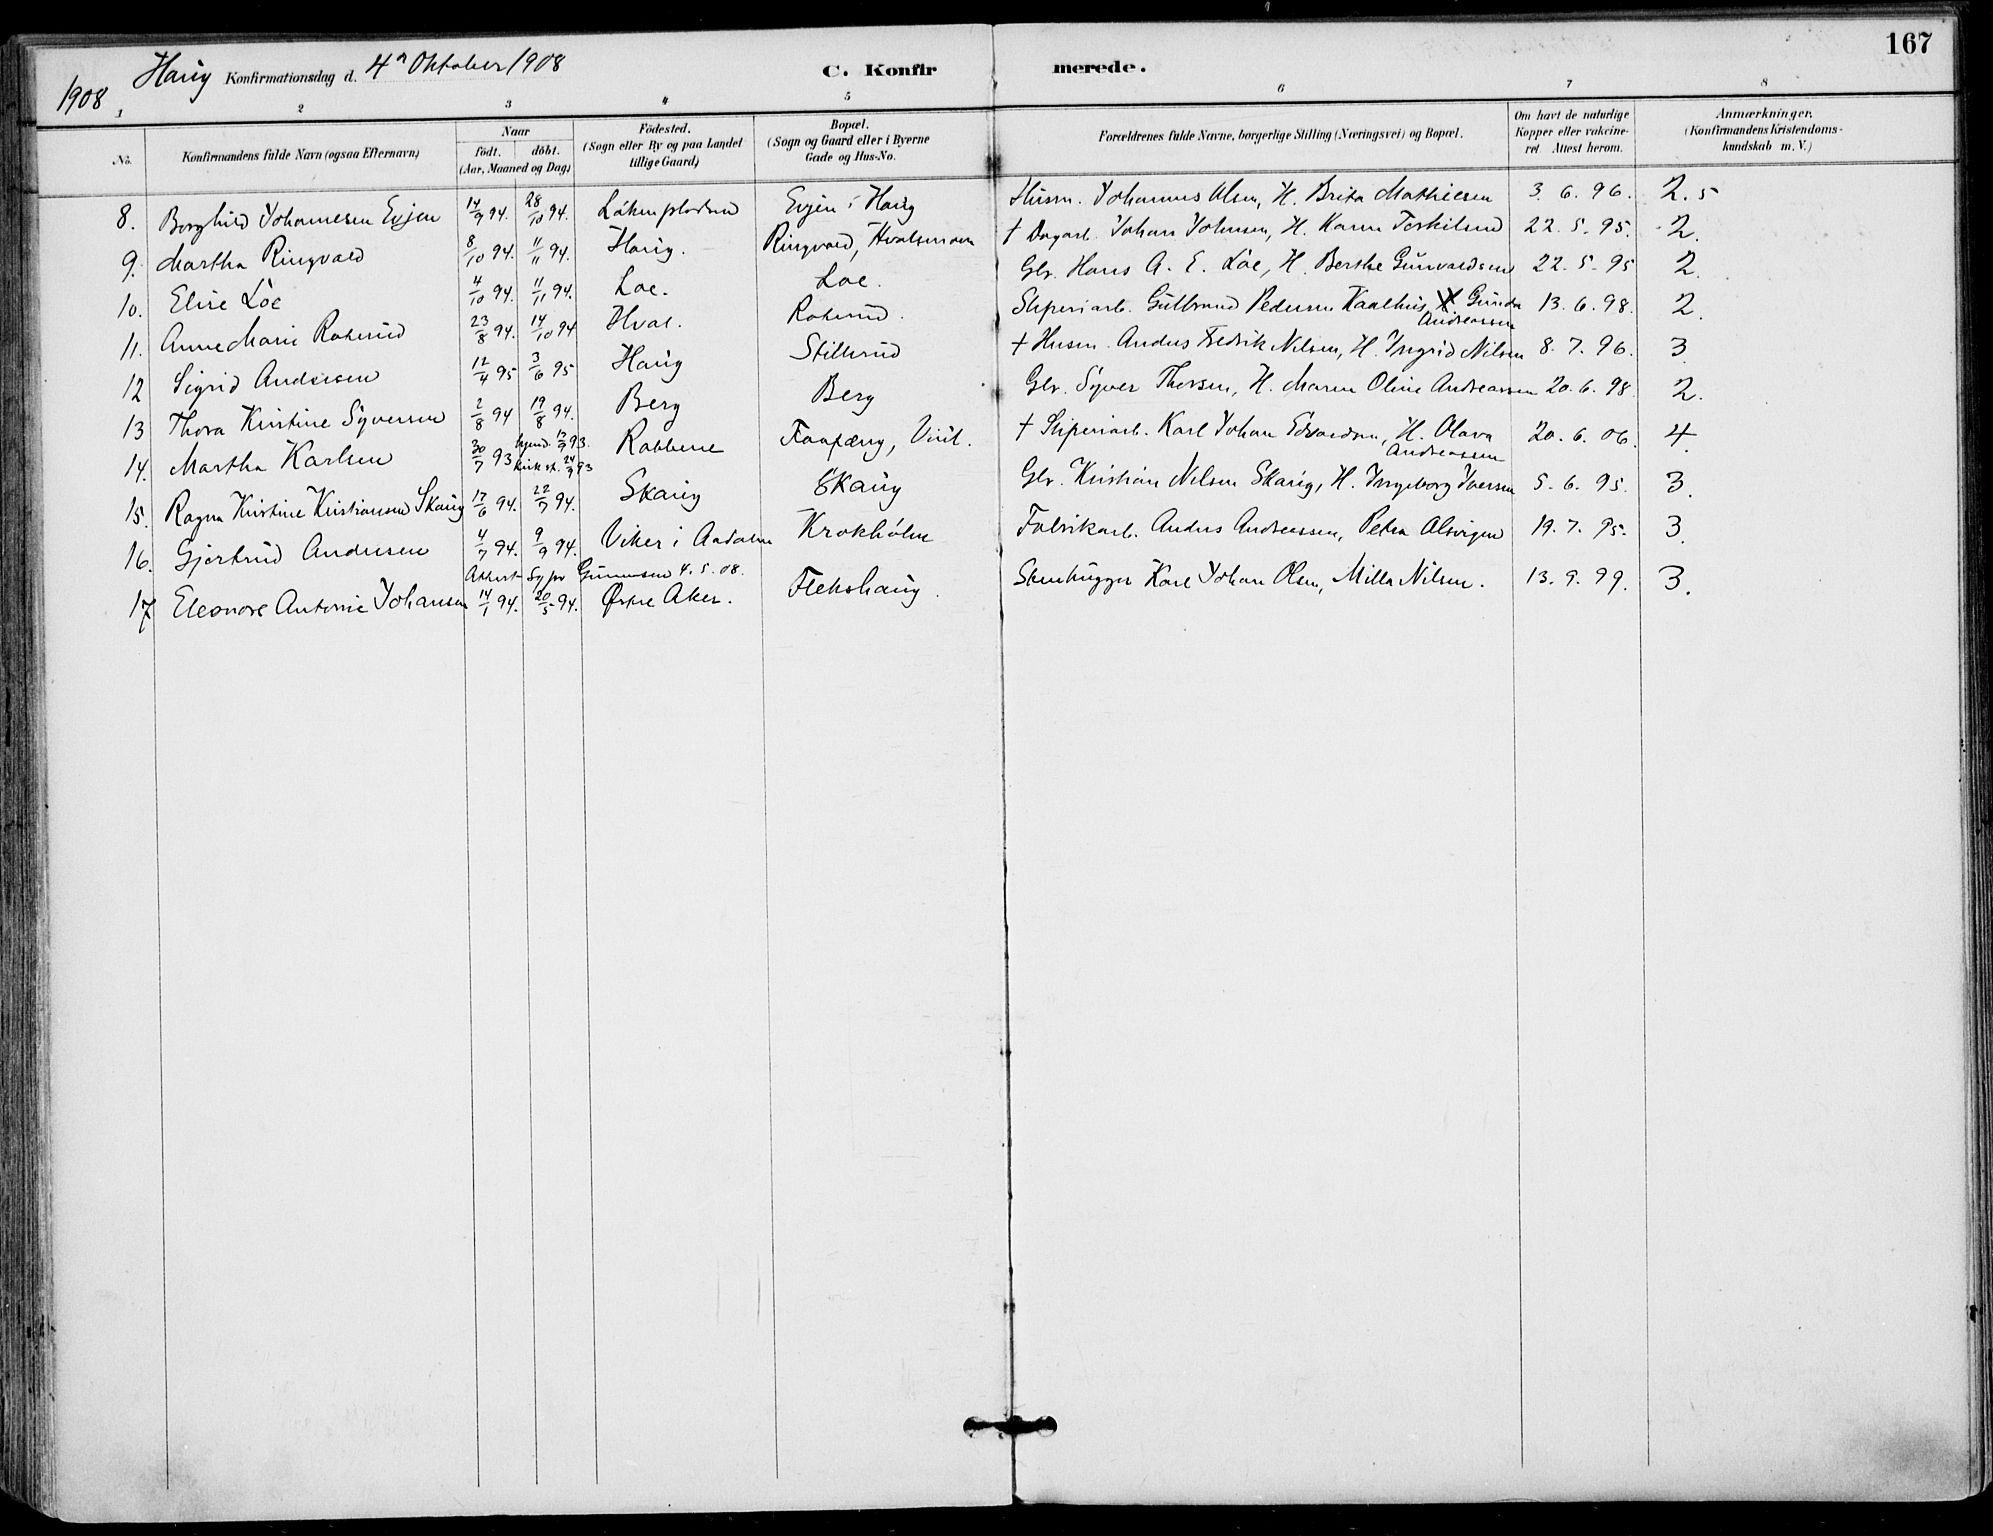 167
Haug Konfirmationsdag d. 4de Oktober 1908 C. Konfirmerede.
1908
1 2 3 4 5 6 7 8
No. Konfirmandens fulde Navn (ogsaa Efternavn) Naar födt. döbt. (Aar, Maaned og Dag) Födested. (Sogn eller By og paa Landet tillige Gaard) Bopæl. (Sogn og Gaard eller i Byerne Gade og Hus-No. Forældrenes fulde Navne, borgerlige Stilling (Næringsvei) og Bopæl. Om havt de naturlige Kopper eller vakcineret. Attest herom. Anmærkninger. (Konfirmandens Kristendomskundskab m. V.)
8. Borghild Johannesen Evjen 14/9 94. 28/10 94. Evjen i Haug Husm. Johannes Olsen, H. Brita Mathiesen 3. 6. 96. 2.5
9. Martha Ringvold 8/10 94. 11/11 94. Haug. Ringvold, Hvalsmoen † Dagarb. Johan Johnsen, H. Karen Torkilsen 22. 5. 95. 2.
10. Elise Löe 4/10 94. 11/11 94. Loe. Loe. Gbr. Hans A. E. Löe, H. Berthe Gunvaldsen 22. 5. 95 2.
11. Anne Marie Roterud 23/8 94. 14/10 94 Hval. Roterud. Sliperiarb. Gulbrand Pedersen Kaalhus, Gunda Andreassen 13. 6. 98. 2.
12 Sigrid Andersen 12/4 95 3/6 95 Haug Stillerud † Husm. Anders Fredrik Nilsen, H. Ingrid Nilsen 8. 7. 96. 3
13 Thora Kristine Syversen 2/8 94 19/8 94. Berg Berg Gbr. Syver Thorsen, H. Maren Oline Andreassen 20. 6. 98. 2.
14. Martha Karlsen 30/7 93 hjemd. 12/9 93. kirk. st. 24/9 93 Robbene Faafæng, Viul. † Sliperiarb. Karl Johan Edvardsen, H. Olava Andreassen 20. 6. 06. 4.
15. Ragna Kristine Kristiansen Skaug 17/6 94. 22/7 94. Skaug Skaug Gbr. Kristian Nilsen Skaug, H. Ingeborg Iversen 5. 6. 95. 3.
16. Gjertrud Andersen 4/7 94. 9/9 94. Viker i Aadalen Krokholm Fabrikarb. Anders Andreassen, Petra 19. 7. 95. 3.
Attest Gunnersen 4. 5. 08.
17 Eleonore Antonie Johansen 14/1 94. 20/5 94. Östre Aker. Flekshaug. Stenhugger Karl Johan Olsen, Milla Nilsen. 13. 9. 99. 3.